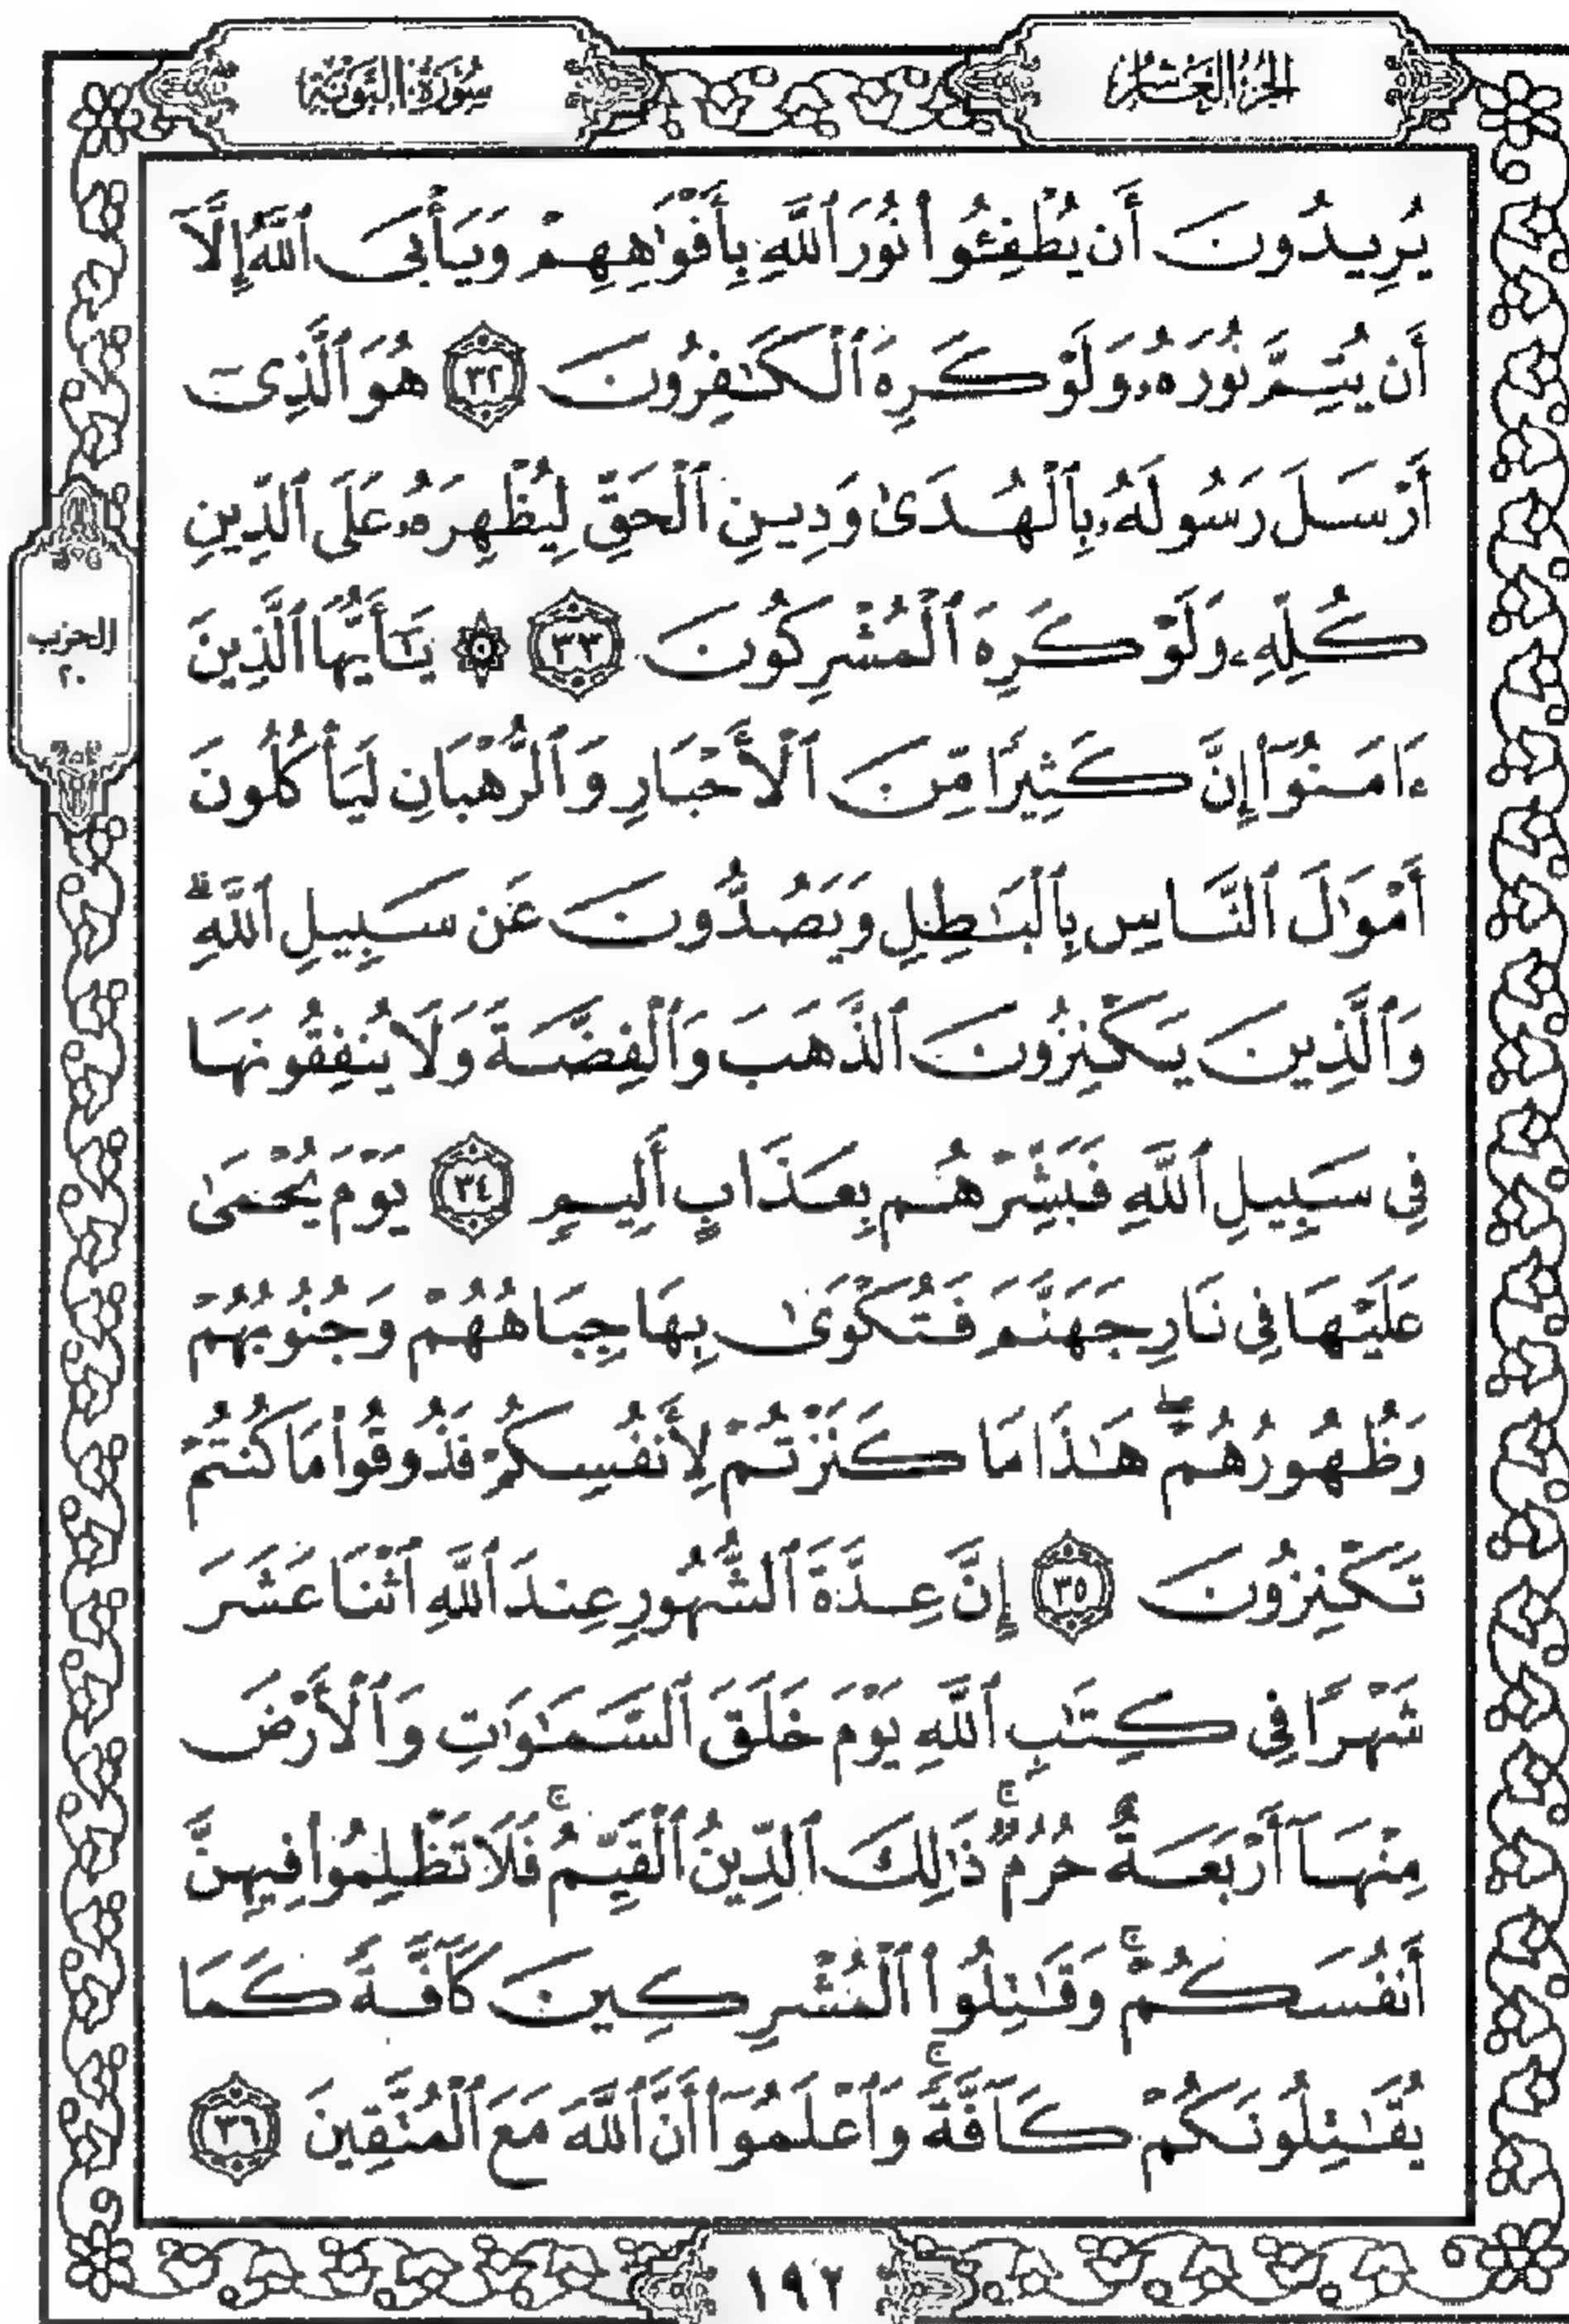 الجزء العاشر
سورة التوبة
يُرِيدُونَ أَن يُطْفِـُٔوا۟ نُورَ ٱللَّهِ بِأَفْوَٰهِهِمْ وَيَأْبَى ٱللَّهُ إِلَّآ
أَن يُتِمَّ نُورَهُۥ وَلَوْ كَرِهَ ٱلْكَٰفِرُونَ ٣٢ هُوَ ٱلَّذِىٓ
أَرْسَلَ رَسُولَهُۥ بِٱلْهُدَىٰ وَدِينِ ٱلْحَقِّ لِيُظْهِرَهُۥ عَلَى ٱلدِّينِ
كُلِّهِۦ وَلَوْ كَرِهَ ٱلْمُشْرِكُونَ ٣٣ ۞ يَٰٓأَيُّهَا ٱلَّذِينَ
الحزب
٢٠
ءَامَنُوٓا۟ إِنَّ كَثِيرًا مِّنَ ٱلْأَحْبَارِ وَٱلرُّهْبَانِ لَيَأْكُلُونَ
أَمْوَٰلَ ٱلنَّاسِ بِٱلْبَٰطِلِ وَيَصُدُّونَ عَن سَبِيلِ ٱللَّهِ ۗ
وَٱلَّذِينَ يَكْنِزُونَ ٱلذَّهَبَ وَٱلْفِضَّةَ وَلَا يُنفِقُونَهَا
فِى سَبِيلِ ٱللَّهِ فَبَشِّرْهُم بِعَذَابٍ أَلِيمٍ ٣٤ يَوْمَ يُحْمَىٰ
عَلَيْهَا فِى نَارِ جَهَنَّمَ فَتُكْوَىٰ بِهَا جِبَاهُهُمْ وَجُنُوبُهُمْ
وَظُهُورُهُمْ ۖ هَٰذَا مَا كَنَزْتُمْ لِأَنفُسِكُمْ فَذُوقُوا۟ مَا كُنتُمْ
تَكْنِزُونَ ٣٥ إِنَّ عِدَّةَ ٱلشُّهُورِ عِندَ ٱللَّهِ ٱثْنَا عَشَرَ
شَهْرًا فِى كِتَٰبِ ٱللَّهِ يَوْمَ خَلَقَ ٱلسَّمَٰوَٰتِ وَٱلْأَرْضَ
مِنْهَآ أَرْبَعَةٌ حُرُمٌ ۚ ذَٰلِكَ ٱلدِّينُ ٱلْقَيِّمُ ۚ فَلَا تَظْلِمُوا۟ فِيهِنَّ
أَنفُسَكُمْ ۚ وَقَٰتِلُوا۟ ٱلْمُشْرِكِينَ كَآفَّةً كَمَا
يُقَٰتِلُونَكُمْ كَآفَّةً ۚ وَٱعْلَمُوٓا۟ أَنَّ ٱللَّهَ مَعَ ٱلْمُتَّقِينَ ٣٦
١٩٢